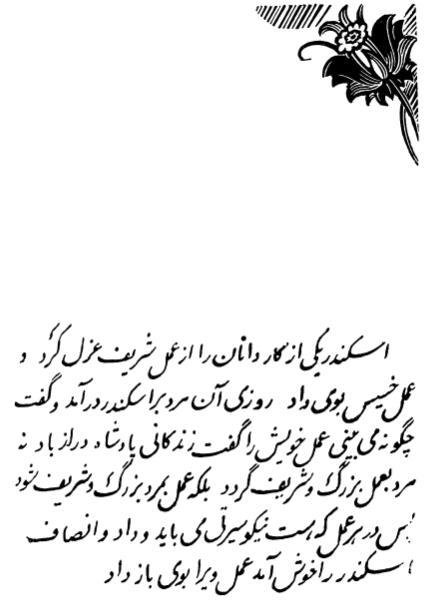 اسکندر یکی از کاردانان را از عمل شریف عزل کرد و
عمل خسیس بوی داد روزی آن مرد بر اسکندر درآمد و گفت
چگونه می بینی عمل خویش را گفت زندگانی پادشاه دراز باد نه
مرد بعمل بزرگ و شریف گردد بلکه عمل بمرد بزرگ و شریف شود
پس در هر عمل که هست نیکو سیرتی می باید و داد و انصاف
اسکندر را خوش آمد عمل ویرا بوی باز داد